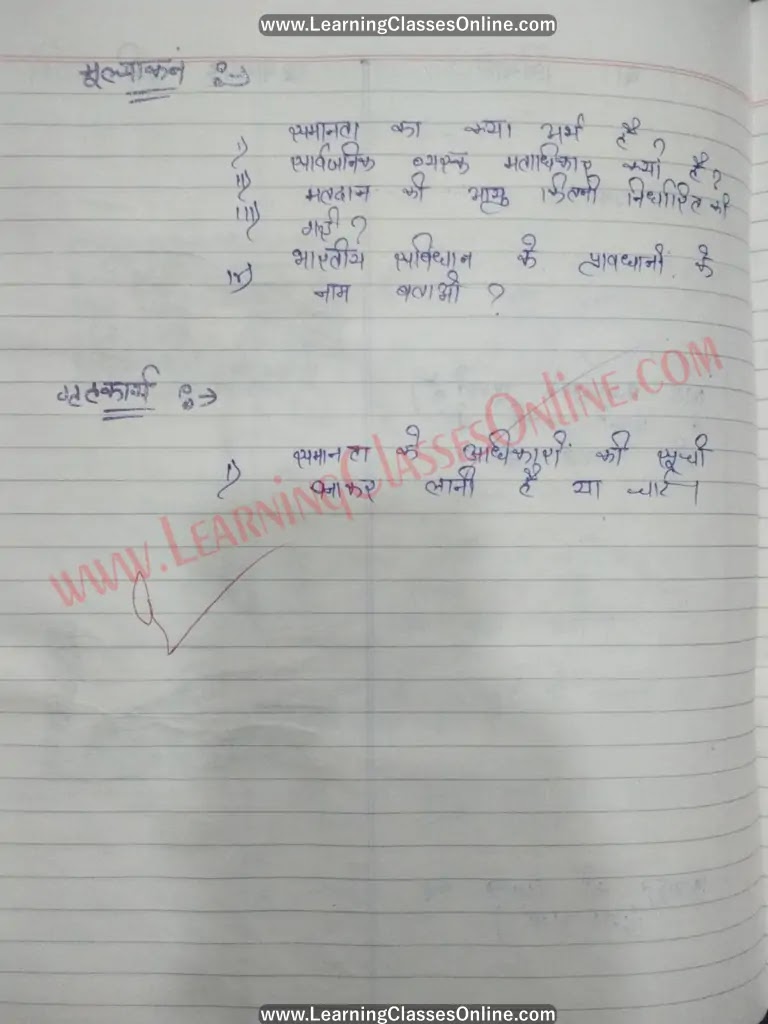 www.LearningClassesOnline.com
मूल्याकन :→
i) समानता का क्या अर्थ है ?
ii) सार्वजनिक व्यस्क मताधिकार क्या है ?
iii) मतदान की आयु कितनी निर्धारित की
गयी ?
iv) भारतीय सविधान के प्रावधानों के
नाम बताओ ?
www.LearningClassesOnline.com
गृहकार्य :→
i) समानता के अधिकारों की सूची
बनाकर लानी है या चार्ट।
www.LearningClassesOnline.com